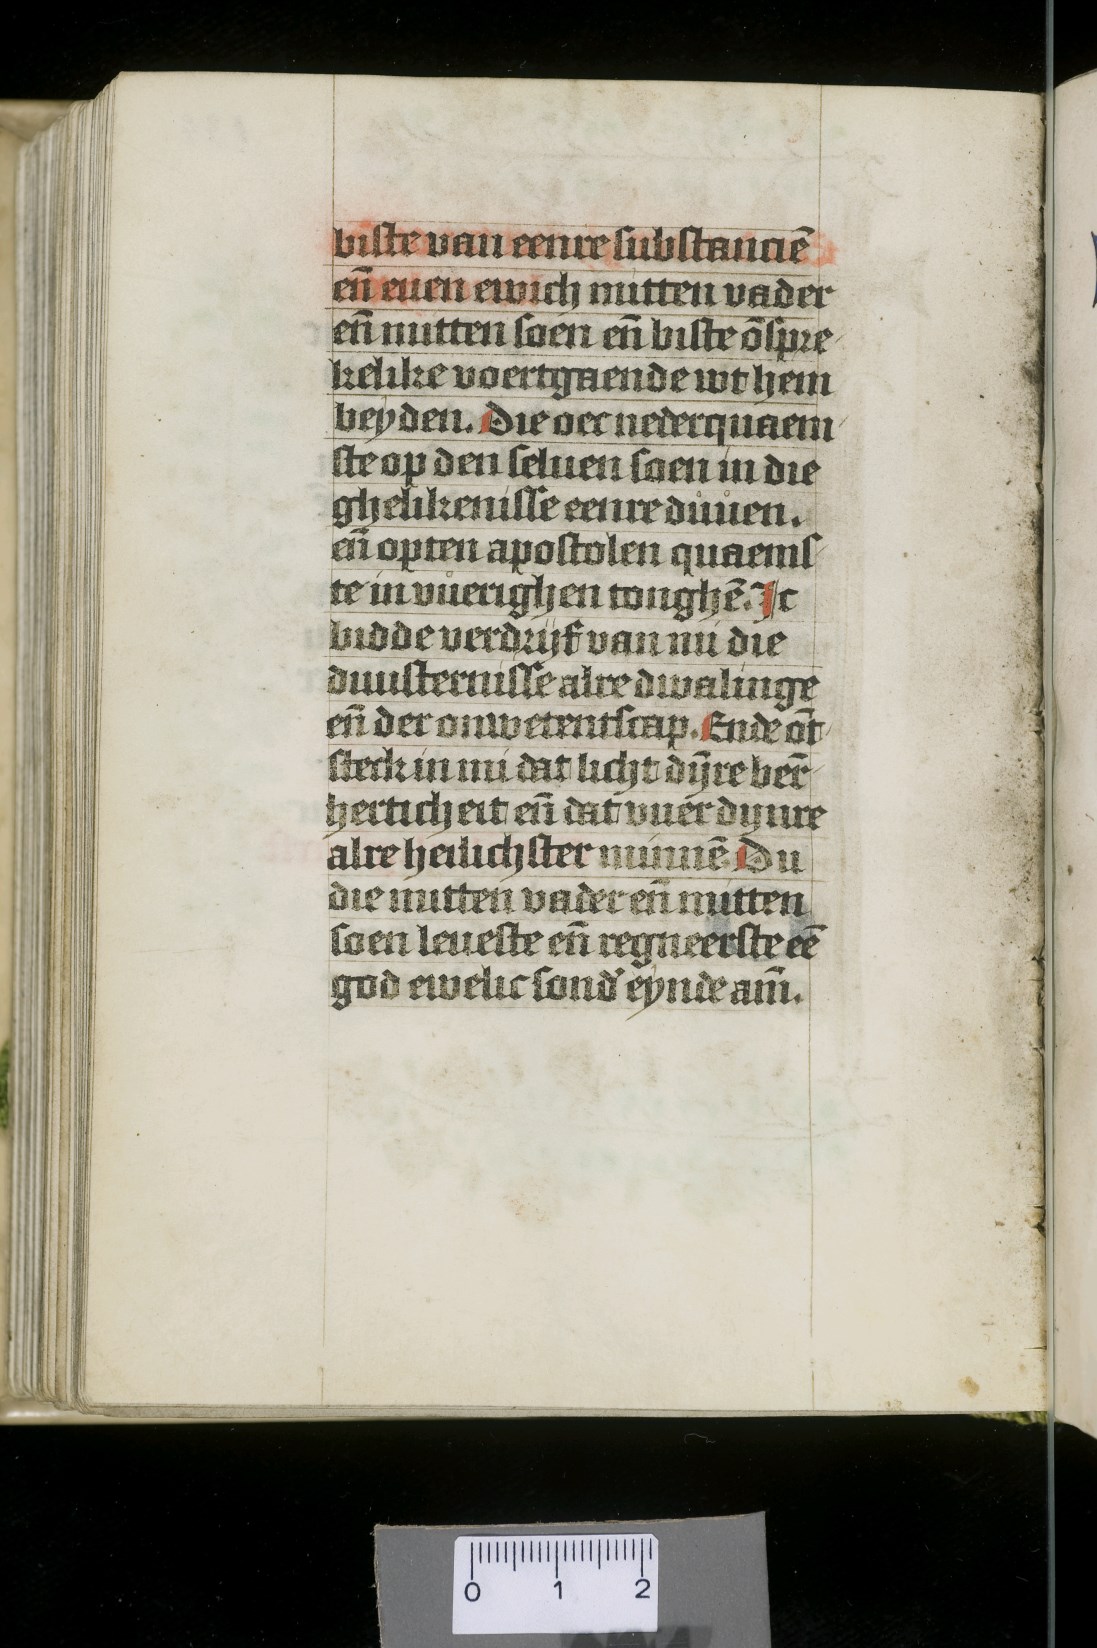 biste van eenre substanciē
en̄ euen ewich mitten vader
en̄ mitten soen en̄ biste ōspre-
kelike voertgaende wt hem
beyden. Die oec nederquaem
ste op den seluen soen in die
ghelikenisse eenre duuen.
en̄ opten apostolen quaems-
te in vuerighen tonghē. Ic
bidde verdrijf van mi die
duusternisse alre dwalinge
en̄ der onwetentscap. Ende ōt-
steck in mi dat licht dyn̄re ber̄-
herticheit en̄ dat vuer dynre
alre heilichster minnē. Du
die mitten vader en̄ mitten
soen leueste en̄ regneerste eē
god ewelic sond' eynde am̄.
0 1 2